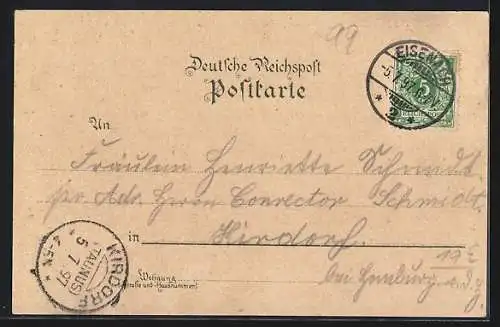 99
Deutsche Reichspost
Postkarte
EISENACH
An
Fräulein Henriette Schmidt
per Adr. Herrn Conrector Schmidt
in Kirdorf
bei Homburg v. d. H.
Wohnung
(Straße und Hausnummer)
KIRDORF
(TAUNUS)
5 7 97
* 4-5N *